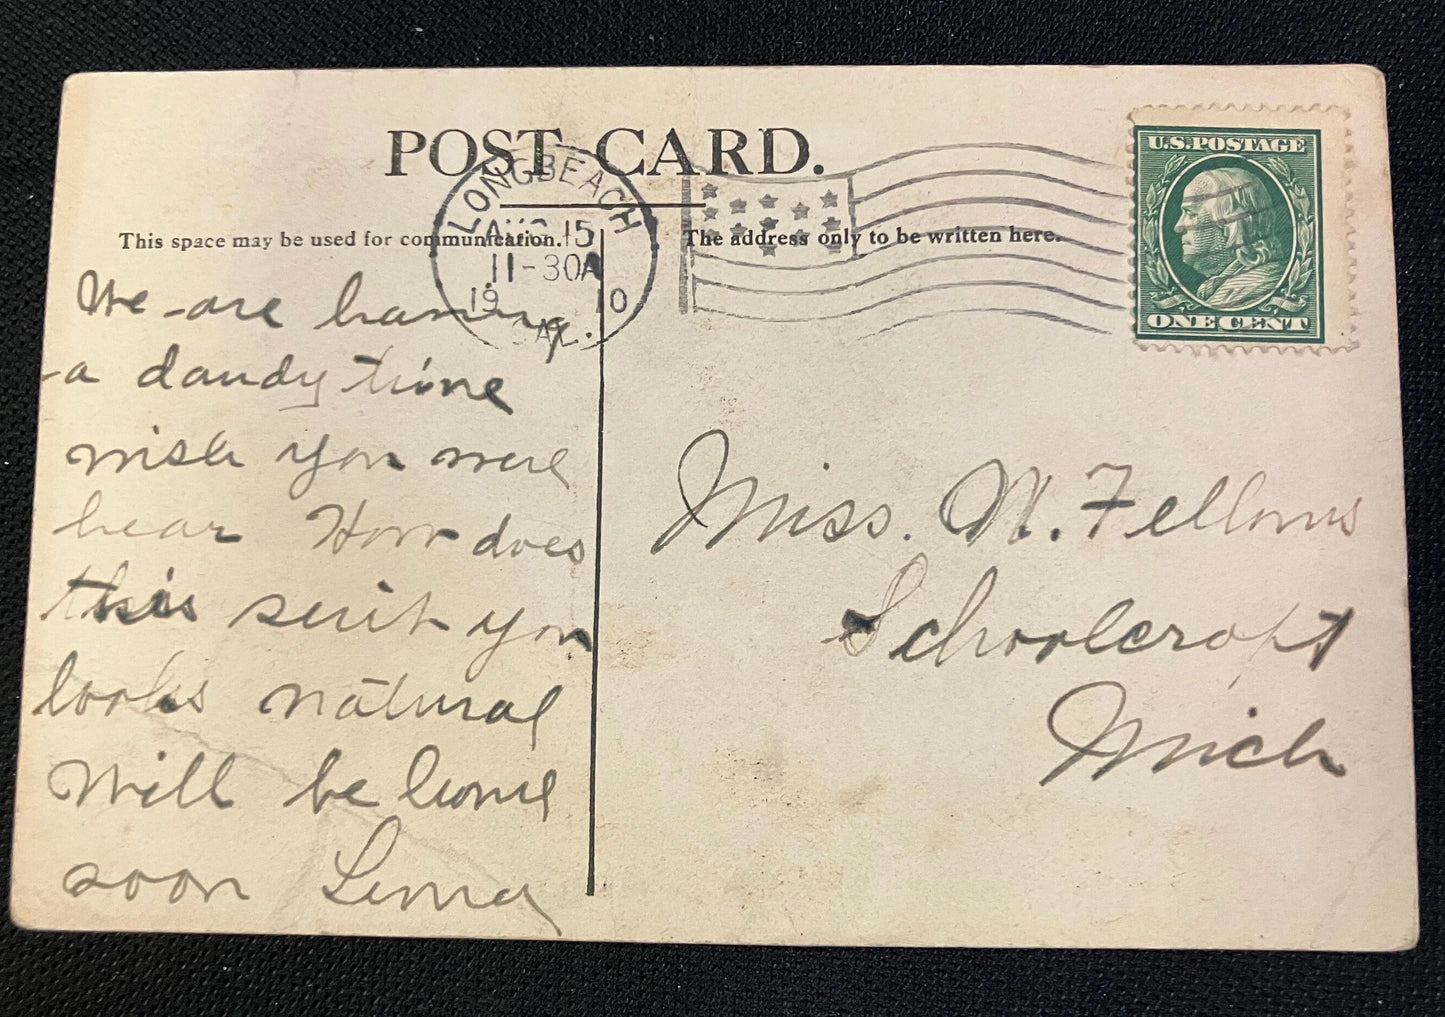 POST CARD.
LONG BEACH
AUG 15
11-30A
19 10
CAL.
U.S. POSTAGE
ONE CENT
This space may be used for communication.
The address only to be written here.
We are having
a dandy time
wish you were
hear How does
this suit you
looks natural
Will be home
soon
Miss. M. Fellows
Schoolcraft
Mich